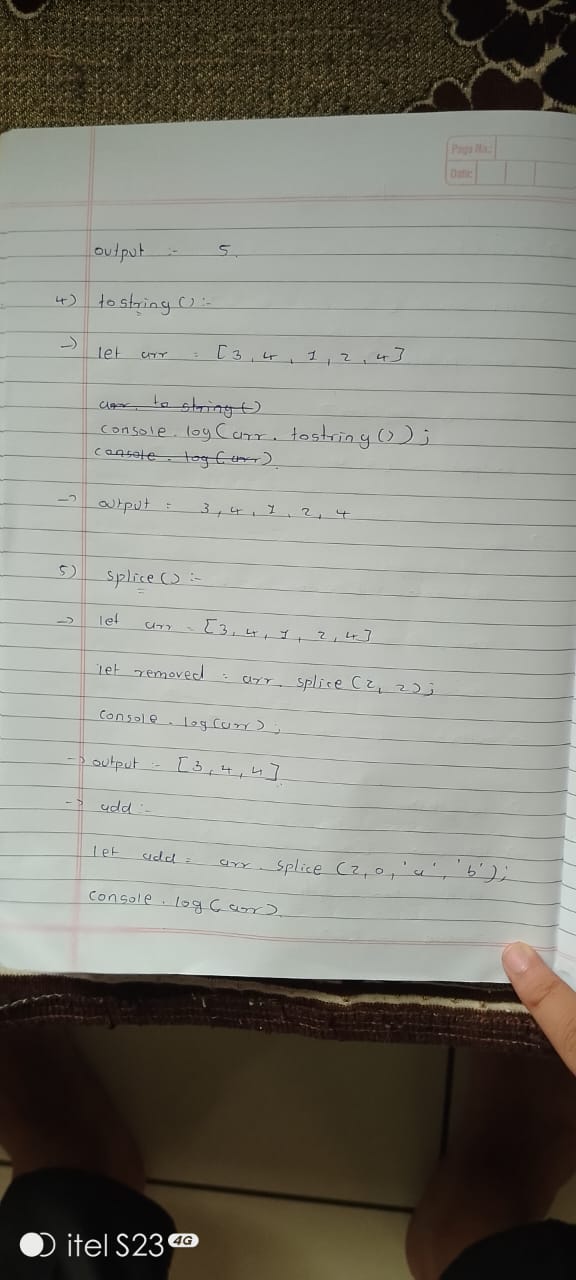 Page No.:
Date:
output :- 5.
4) tostring() :-
→ let arr = [3, 4, 1, 2, 4]
arr. to string()
console. log(arr. tostring());
console. log(arr)
→ output = 3, 4, 1, 2, 4
5) splice() :-
→ let arr = [3, 4, 1, 2, 4]
let removed = arr. splice(2, 2);
console. log(arr);
→ output :- [3, 4, 4]
→ add :-
let add = arr. splice (2, 0, 'a', 'b');
console. log(arr)
itel S23 4G